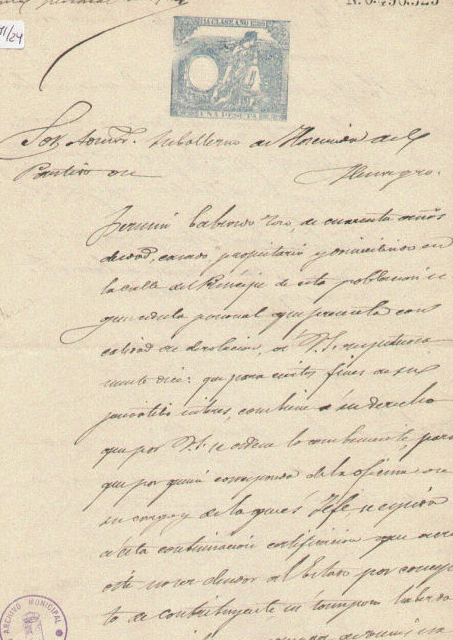 N. 0.490.525
11ª CLASE AÑO 1889
UNA PESETA
Sor. Admor. Subalterno de Hacienda del
Partido de
Fermin Caberudo Toro, de cuarenta años
de edad, casado, propietario y domiciliado en
la calle del Principe de esta poblacion se
gun cedula personal que presenta con
calidad de devolucion, á V. S. respetuosa
mente dice: que para ciertos fines de su
particular interes, combiene á su derecho
que por V. S. se ordene lo combeniente, para
que por quien corresponda de la oficina de
su cargo y de la que es Jefe se espida
á esta continuacion certificacion que acre
dite no ser deudor al Estado por concep
to de contribuyente ni tampoco haberlo
ARCHIVO MUNICIPAL